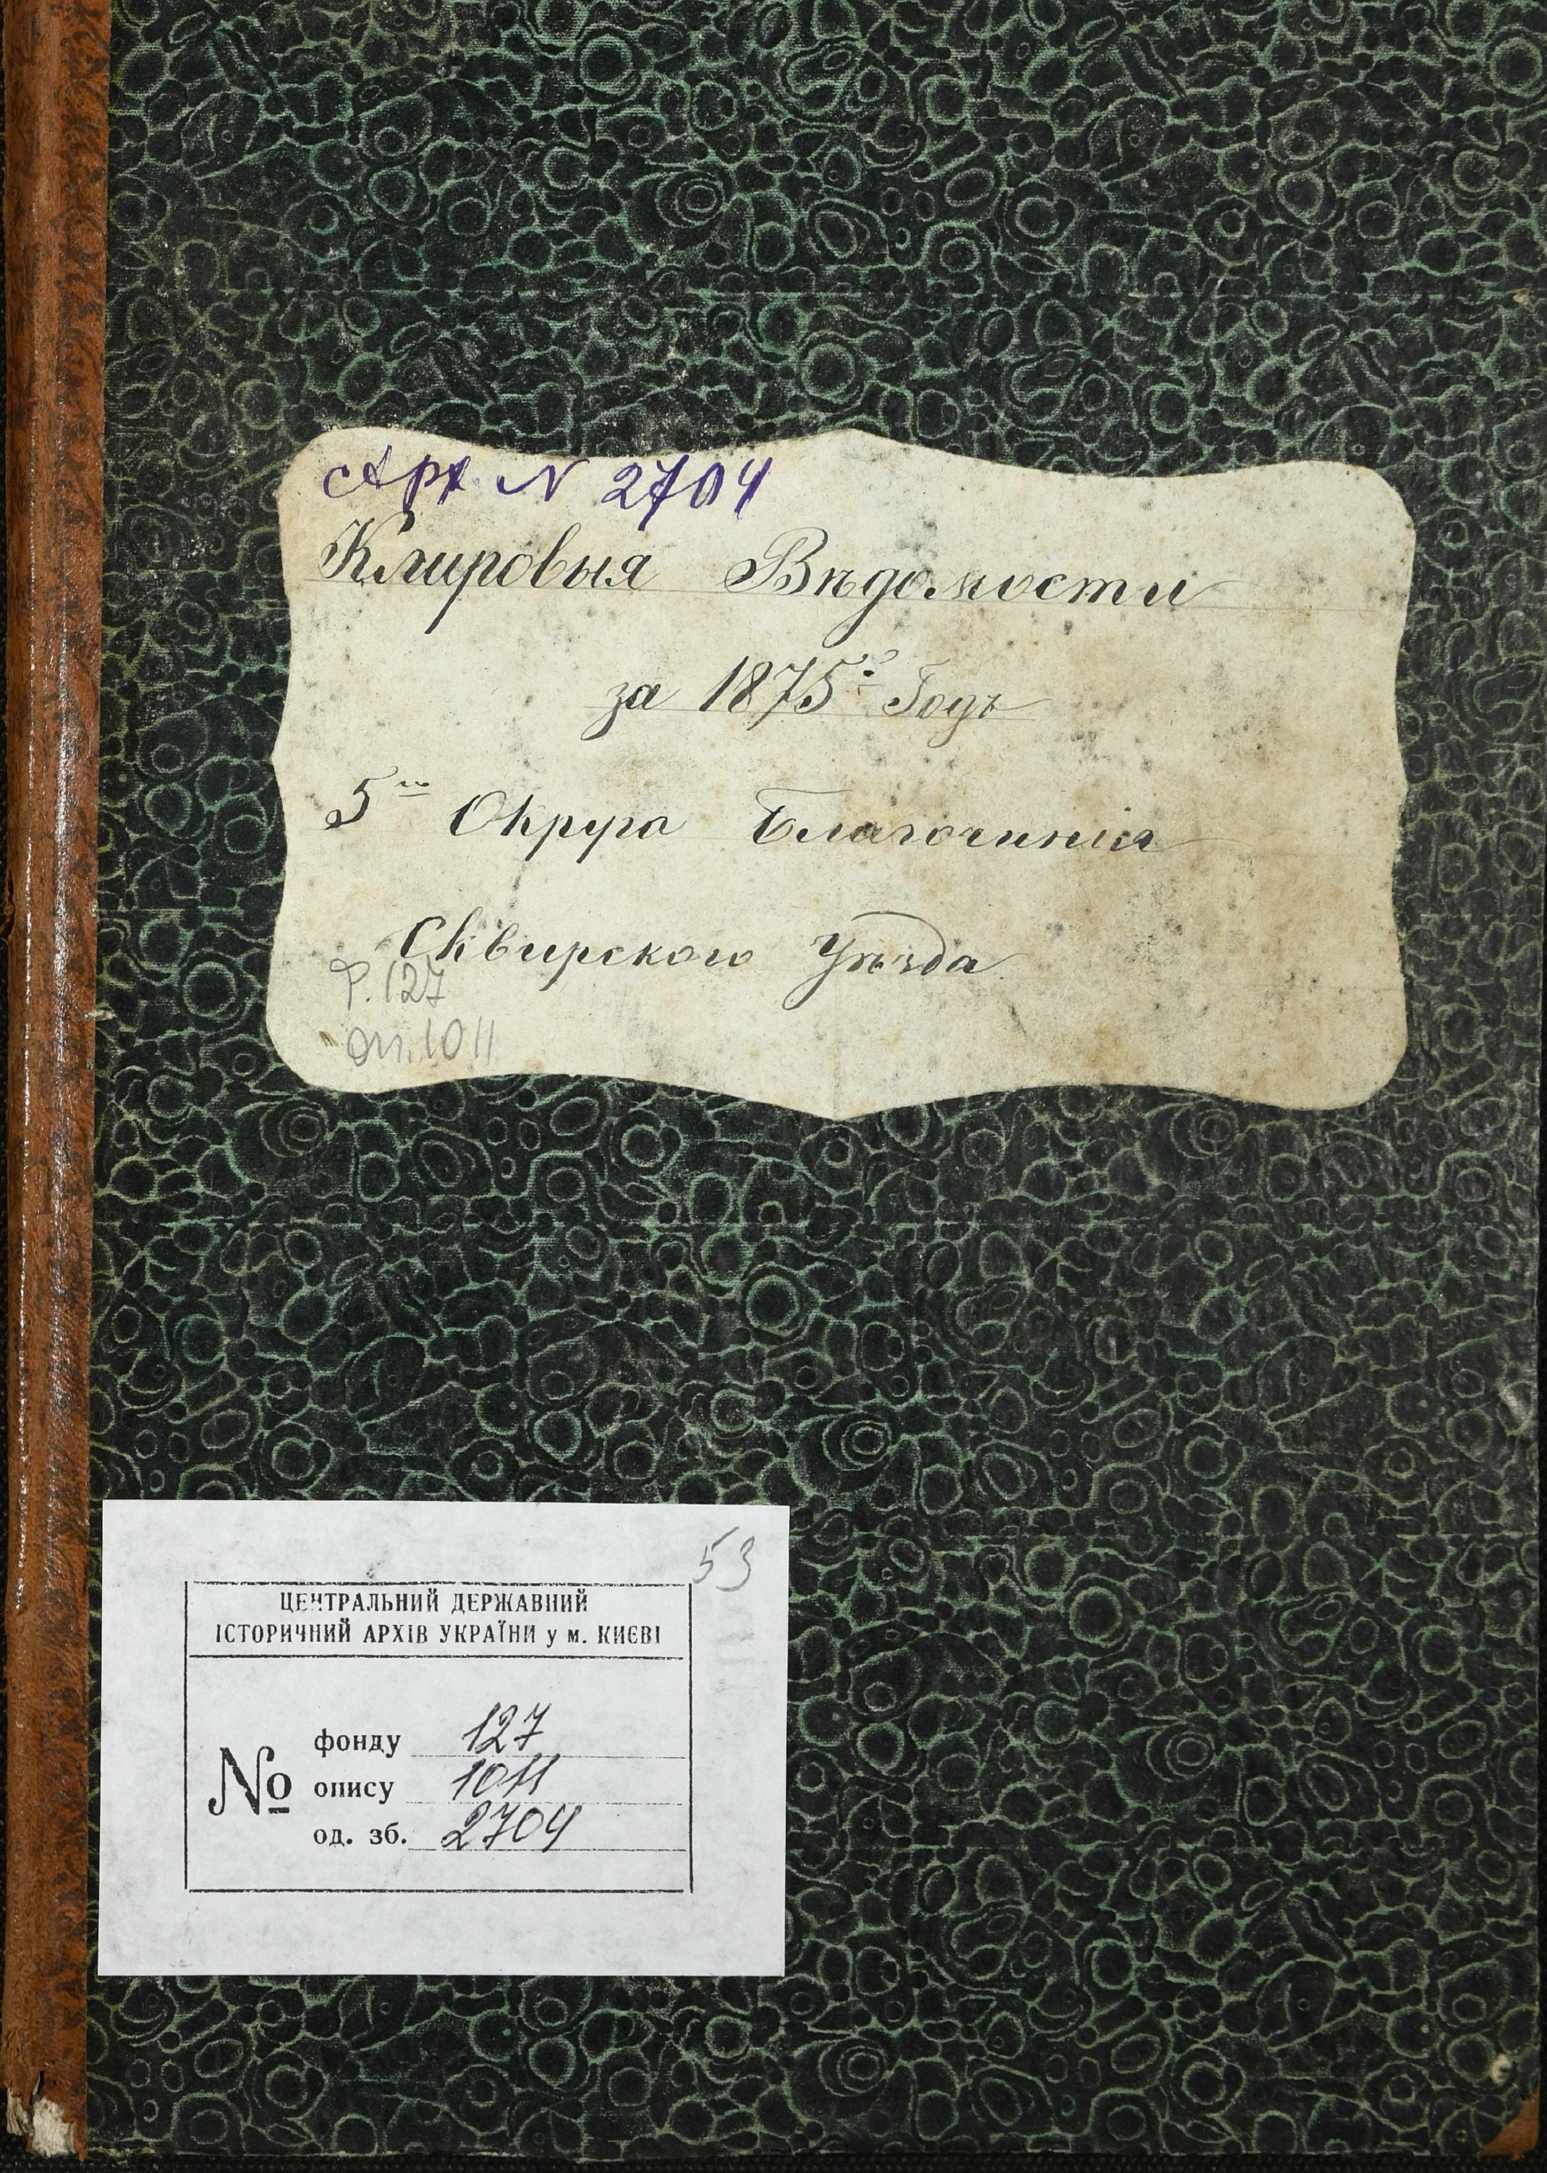 Арх N 2704
Клировыя Вѣдомости
за 1875й Годъ
5го Округа Благочинія
Сквирского Уѣзда
ф. 127
оп. 1011
53
ЦЕНТРАЛЬНИЙ ДЕРЖАВНИЙ
ІСТОРИЧНИЙ АРХІВ УКРАЇНИ у м. КИЄВІ
№
фонду 127
опису 1011
од. зб. 2704